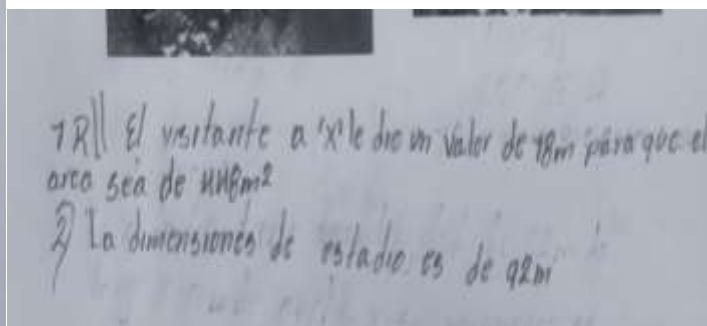 1R|| El visitante a "x" le dio un valor de 18m para que el
area sea de 448m²
2) La dimensiones de estadio es de 92m